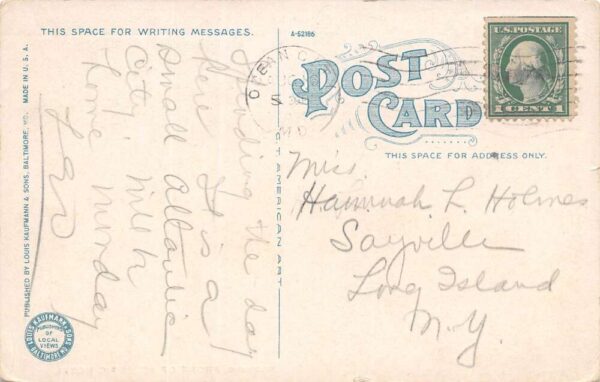 THIS SPACE FOR WRITING MESSAGES.
A-52186
POST
CARD
THIS SPACE FOR ADDRESS ONLY.
U.S. POSTAGE
1 CENT 1
OCEAN C
MD
D
Spending the day
here. It is a
small Atlantic
City. Will
home Monday
Miss.
Hannah L. Holmes
Sayville
Long Island
N.Y.
AMERICAN ART
PUBLISHED BY LOUIS KAUFMANN & SONS, BALTIMORE, MD. MADE IN U.S.A.
LOUIS KAUFMANN & SONS
BALTIMORE MD.
PUBLISHERS
OF
LOCAL
VIEWS